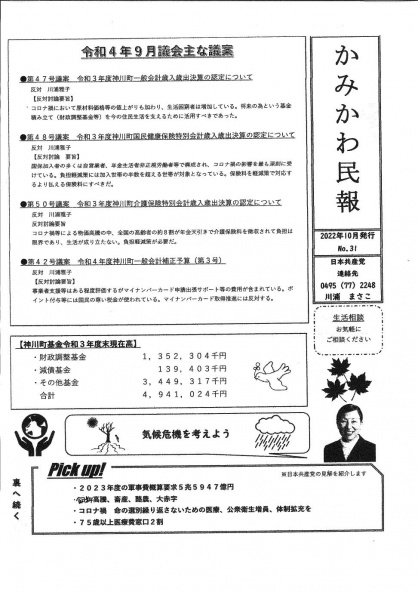 かみかわ民報
2022年10月発行
No.31
日本共産党
連絡先
0495(77)2248
川浦 まさこ
生活相談
お気軽に
ご相談ください
令和4年9月議会主な議案
●第47号議案 令和3年度神川町一般会計歳入歳出決算の認定について
反対 川浦雅子
【反対討論要旨】
コロナ禍において原材料価格等の値上がりも加わり、生活困窮者は増加している。将来の為という基金
積み立て(財政調整基金等)を今の住民生活を支えるために活用すべきであった。
●第48号議案 令和3年度神川町国民健康保険特別会計歳入歳出決算の認定について
反対 川浦雅子
【反対討論 要旨】
国保加入者の多くは自営業者、年金生活者非正規労働者等で構成され、コロナ禍の影響を最も深刻に受
けている。負担軽減策には加入世帯の半数を超える世帯が対象となっている。保険料を軽減策で対応す
るより払える保険料にすべきだ。
●第50号議案 令和3年度神川町介護保険特別会計歳入歳出決算の認定について
反対 川浦雅子
反対討論要旨
コロナ禍等による物価高騰の中、全国の高齢者の約8割が年金天引きで介護保険料を徴収されて負担は
限界であり、生活が成り立たない。負担軽減策が必要だ。
●第42号議案 令和4年度神川町一般会計補正予算(第3号)
反対 川浦雅子
【反対討論要旨】
事業者支援等はある程度評価するがマイナンバーカード申請出張サポート等の費用が含まれている。ポ
イント付与等には国民の尊い税金が使われている。マイナンバーカード取得推進には反対する。
【神川町基金令和3年度末現在高】
・財政調整基金 1,352,304千円
・減債基金 139,403千円
・その他基金 3,449,317千円
合計 4,941,024千円
気候危機を考えよう
Pick up!
※日本共産党の見解を紹介します
・2023年度の軍事費概算要求5兆5947億円
・飼料高騰、畜産、酪農、大赤字
・コロナ禍 命の選別繰り返さないための医療、公衆衛生増員、体制拡充を
・75歳以上医療費窓口2割
裏へ続く